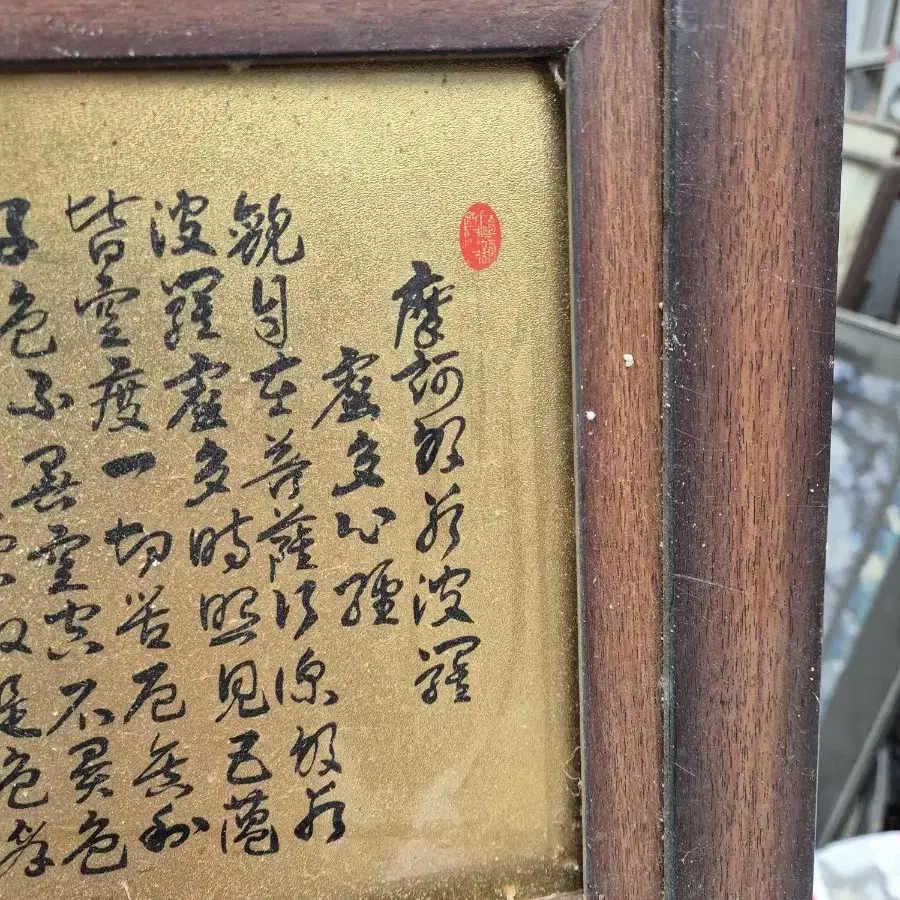 摩訶般若波羅
蜜多心經
觀自在菩薩行深般若
波羅蜜多時照見五蘊
皆空度一切苦厄舍利
子色不異空空不異色
是色受